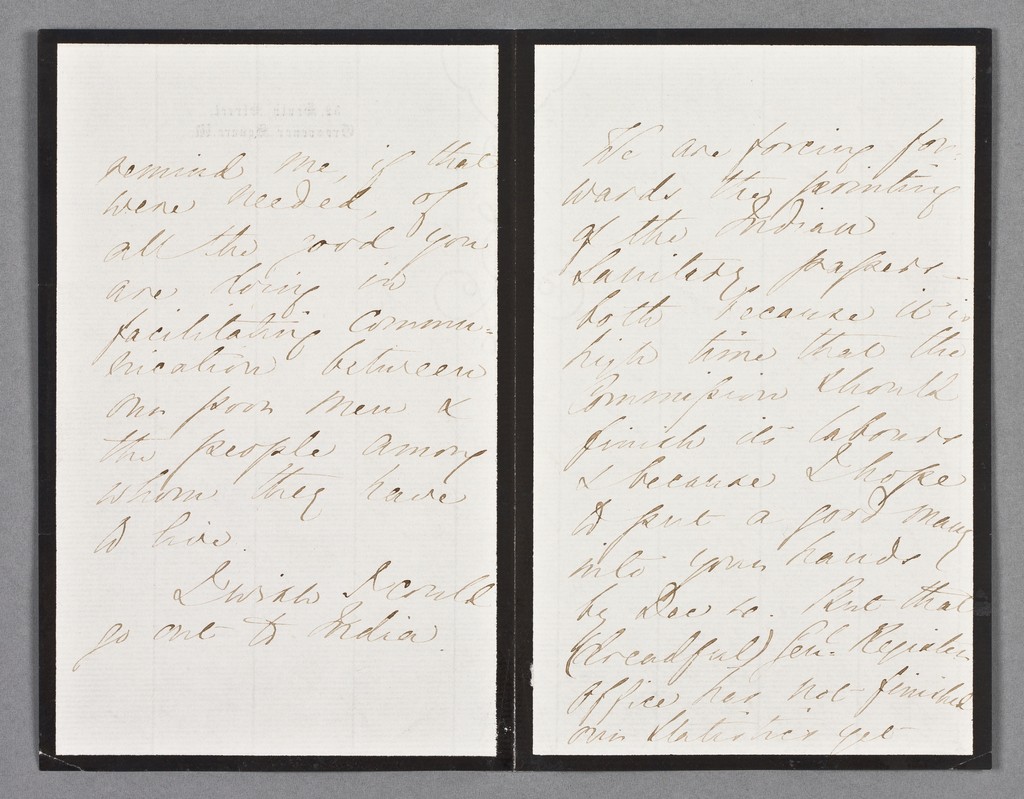 remind me, if that
were needed, of
all the good you
are doing in
facilitating commu-
nication between
our poor men &
the people among
whom they have
to live.
I wish I could
go out to India.
We are forcing for-
wards the printing
of the Indian
Sanitary papers -
both because it is
high time that the
Commission should
finish its labours
& because I hope
to put a good many
into your hands
by Dec
But that
(dreadful) Genl. Register
Office has not finished
our Statistics yet